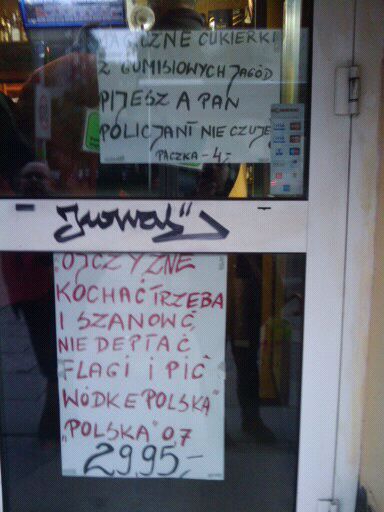 CZNE CUKIERKI
Z GUMISIOWYCH JAGÓD
PIJESZ A PAN
POLICJANT NIE CZUJE
PACZKA - 4,-
OJCZYZNE
KOCHAĆ TRZEBA
I SZANOWĆ,
NIE DEPTAĆ
FLAGI I PIĆ
WÓDKE POLSKĄ"
„POLSKA" 0,7
29,95,-